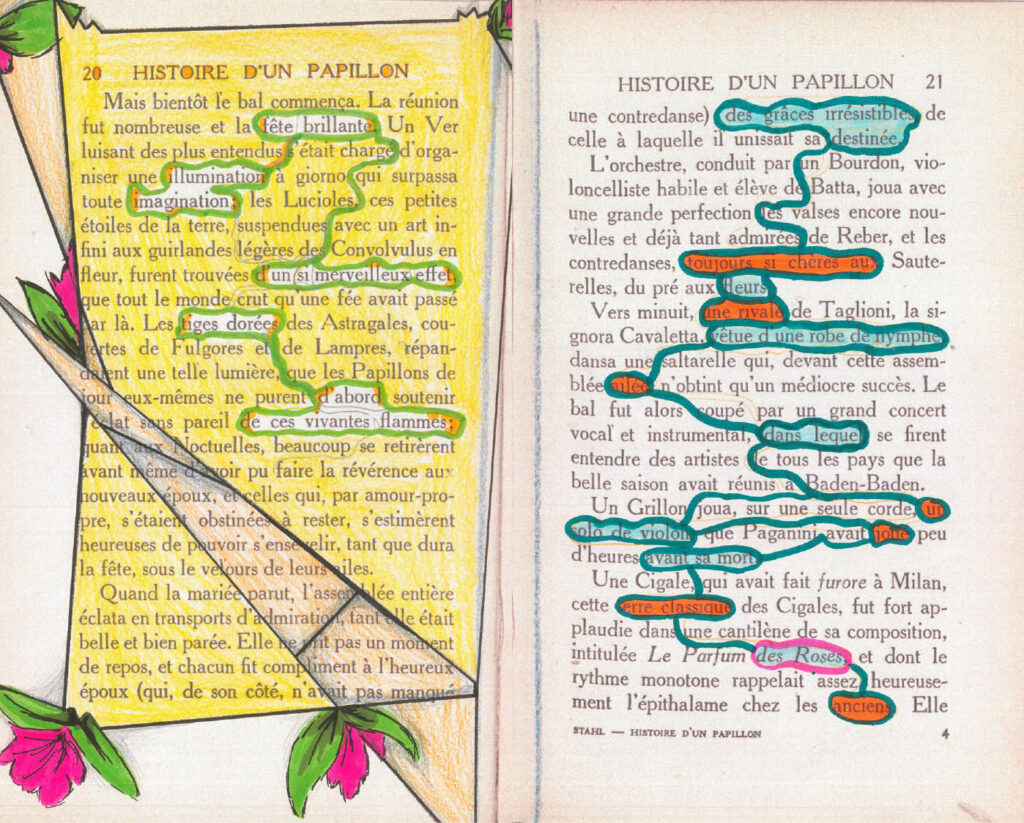 20 HISTOIRE D'UN PAPILLON
Mais bientôt le bal commença. La réunion
fut nombreuse et la fête brillante. Un Ver
luisant des plus entendus s'était chargé d'orga-
niser une illumination à giorno qui surpassa
toute imagination; les Lucioles, ces petites
étoiles de la terre, suspendues avec un art in-
fini aux guirlandes légères des Convolvulus en
fleur, furent trouvées d'un si merveilleux effet,
que tout le monde crut qu'une fée avait passé
par là. Les tiges dorées des Astragales, cou-
vertes de Fulgores et de Lampres, répan-
daient une telle lumière, que les Papillons de
jour eux-mêmes ne purent d'abord soutenir
l'éclat sans pareil de ces vivantes flammes;
quant aux Noctuelles, beaucoup se retirèrent
avant même d'avoir pu faire la révérence aux
nouveaux époux, et celles qui, par amour-pro-
pre, s'étaient obstinées à rester, s'estimèrent
heureuses de pouvoir s'ensevelir, tant que dura
la fête, sous le velours de leurs ailes.
Quand la mariée parut, l'assemblée entière
éclata en transports d'admiration, tant elle était
belle et bien parée. Elle ne prit pas un moment
de repos, et chacun fit compliment à l'heureux
époux (qui, de son côté, n'avait pas manqué
HISTOIRE D'UN PAPILLON 21
une contredanse) des grâces irrésistibles de
celle à laquelle il unissait sa destinée.
L'orchestre, conduit par un Bourdon, vio-
loncelliste habile et élève de Batta, joua avec
une grande perfection les valses encore nou-
velles et déjà tant admirées de Reber, et les
contredanses, toujours si chères aux Saute-
relles, du pré aux fleurs.
Vers minuit, une rivale de Taglioni, la si-
gnora Cavaletta, vêtue d'une robe de nymphe
dansa une saltarelle qui, devant cette assem-
blée ailée, n'obtint qu'un médiocre succès. Le
bal fut alors coupé par un grand concert
vocal et instrumental, dans lequel se firent
entendre des artistes de tous les pays que la
belle saison avait réunis à Baden-Baden.
Un Grillon joua, sur une seule corde, un
solo de violon que Paganini avait joué peu
d'heures avant sa mort.
Une Cigale, qui avait fait furore à Milan,
cette terre classique des Cigales, fut fort ap-
plaudie dans une cantilène de sa composition,
intitulée Le Parfum des Roses, et dont le
rythme monotone rappelait assez heureuse-
ment l'épithalame chez les anciens. Elle
STAHL — HISTOIRE D'UN PAPILLON 4